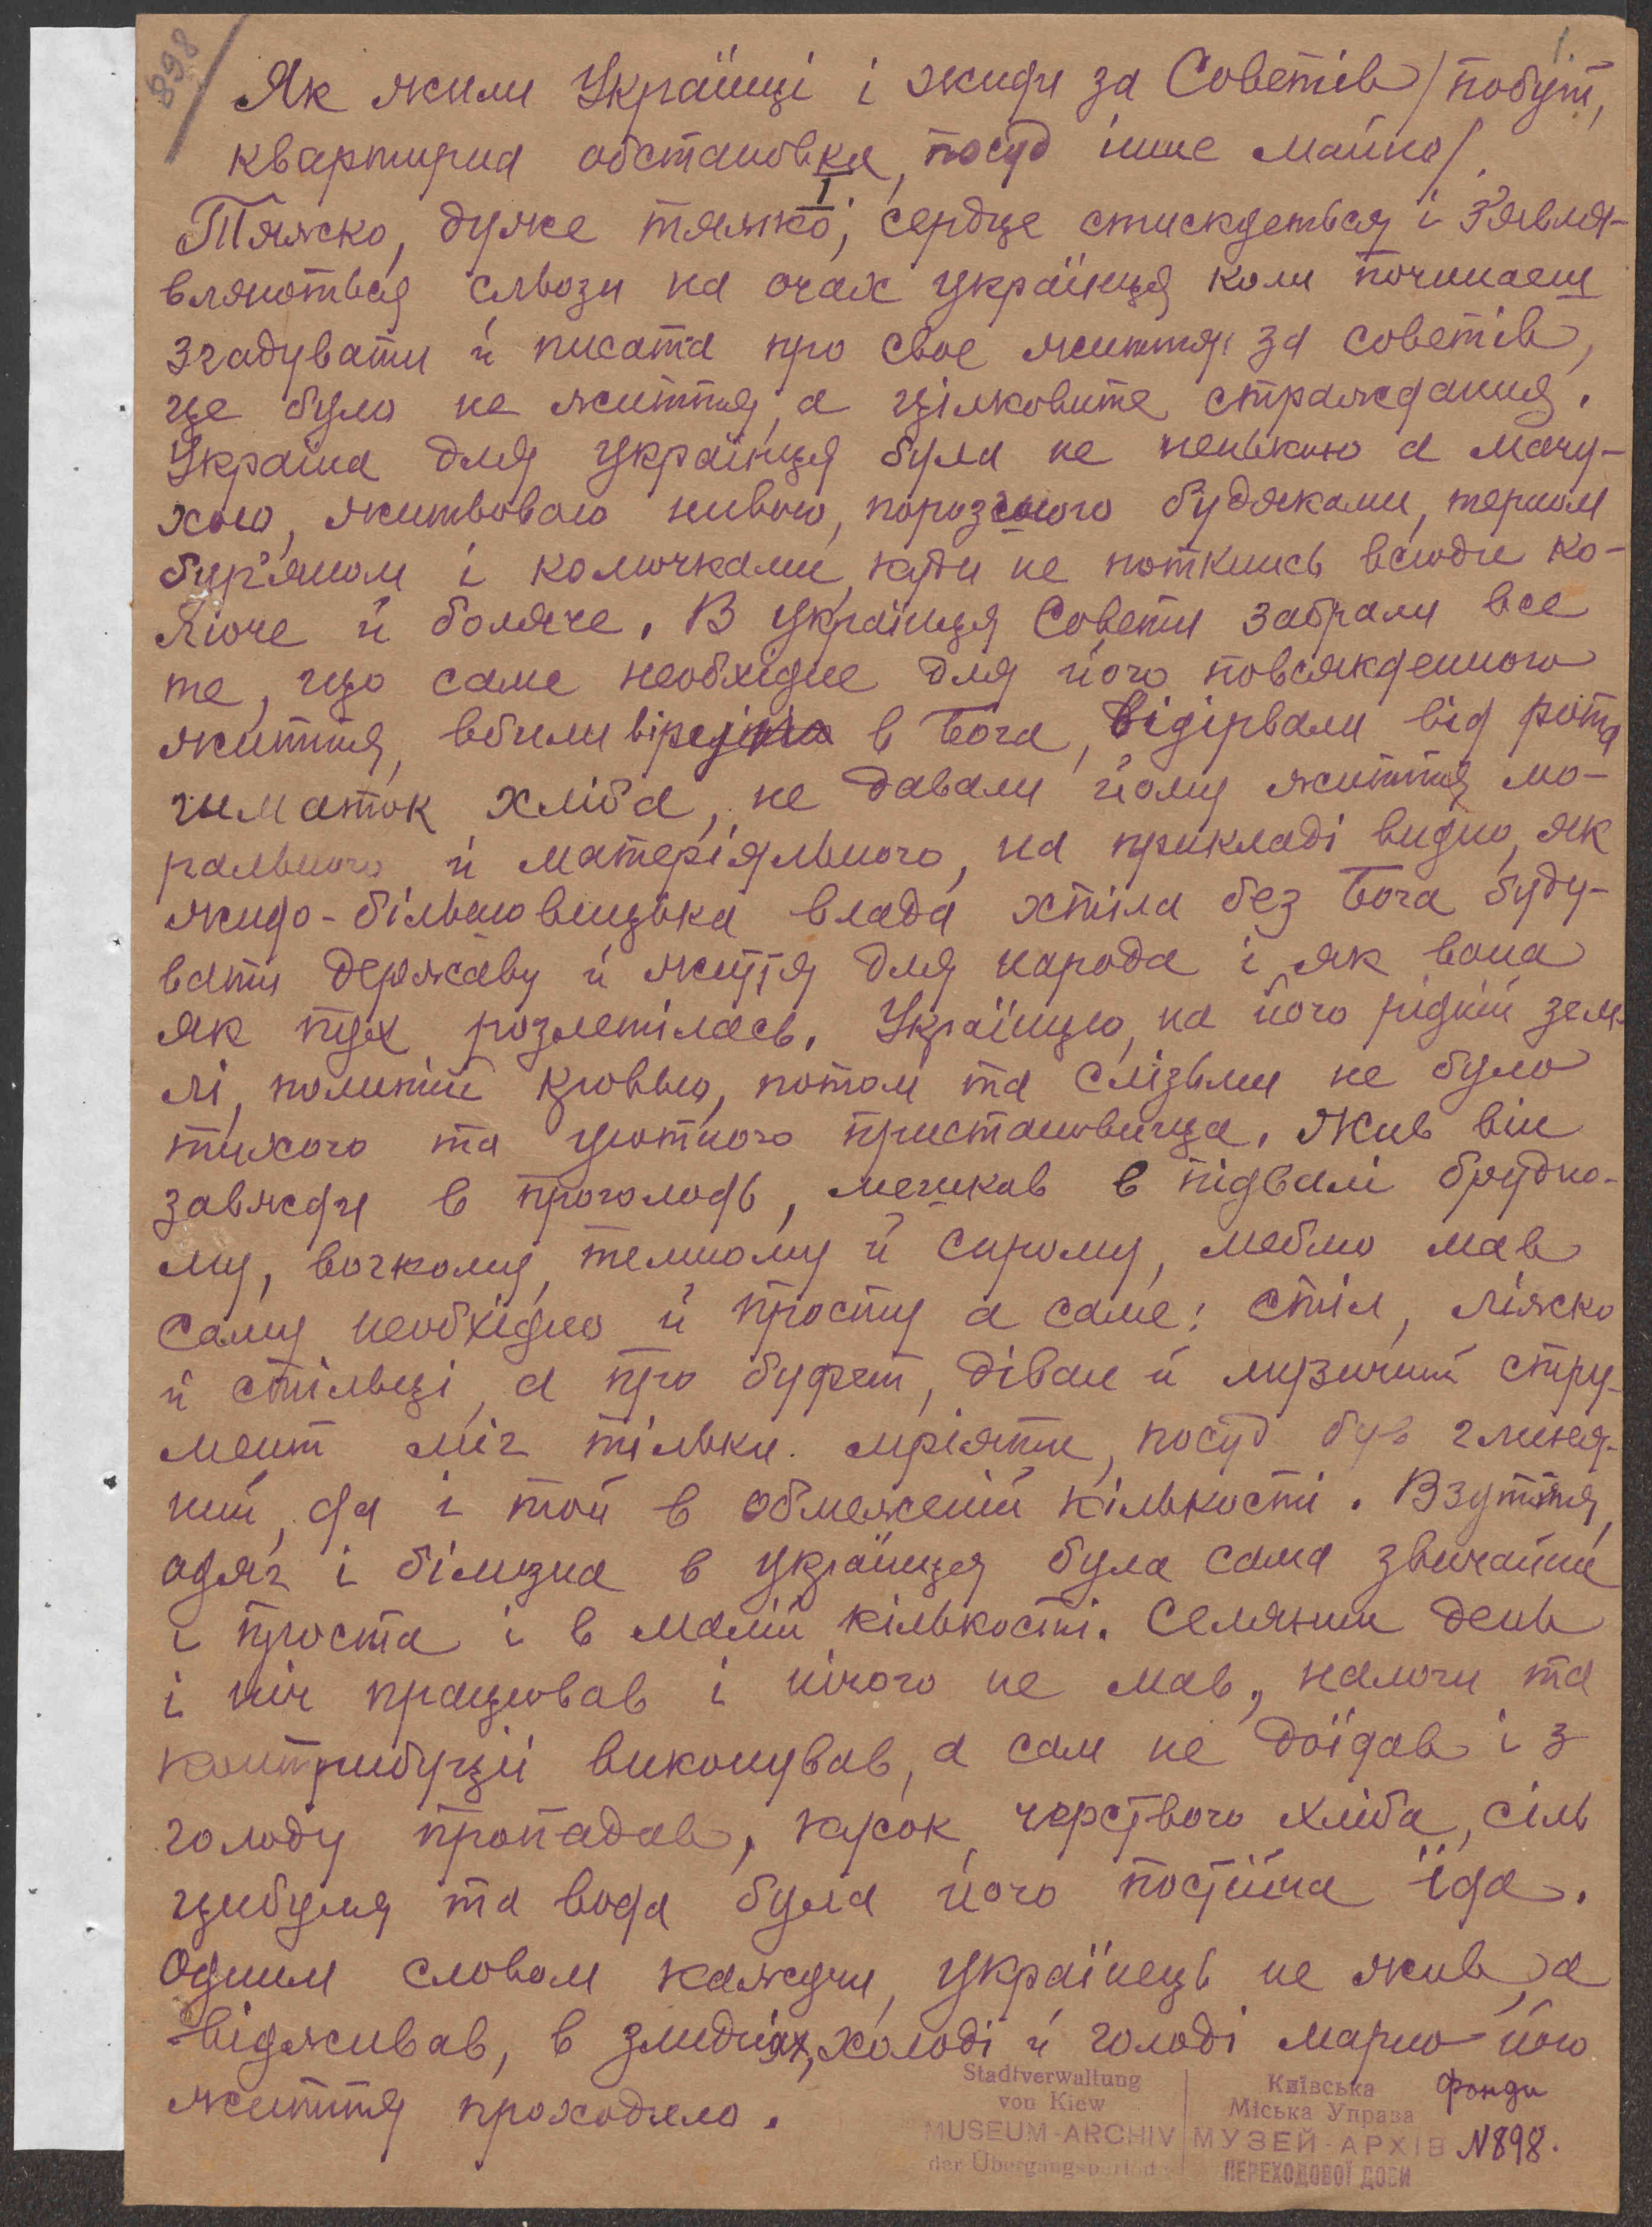 898
1.
Як жили Українці і жиди за Советів /побут,
квартирна обстановка, посуд інше майно/.
1
Тяжко, дуже тяжко, сердце стискається і з'явля-
вляються сльози на очах українця коли починаєш
згадувати й писата про своє життя за советів,
це було не життя, а цілковите страждання.
Україна для українця була не ненькою а мачу-
хою, житьовою нивою, порозшого будяками, терном
бур'яном і колючками, куди не поткнись всюди ко-
люче й боляче. В українця Совети забрали все
те, що саме необхідне для його повсякденного
життя, вбили віру в Бога, відірвали від рота
шматок хліба, не давали йому життя мо-
рального й матеріяльного, на прикладі видно, як
жидо-більшовицька влада хтіла без Бога буду-
вати державу й життя для народа і як вона
як пух розлетілась. Українцю, на його рідній зем-
лі, политій кровью, потом та слізьми не було
тихого та уютного пристановища. Жив він
завжди в проголодь, мешкав в підвалі брудно-
му, вогкому, темному й сирому, меблю мав
саму необхідно й просту а саме: стіл, ліжко
й стільці, а про буфет, діван й музичний стру-
мент міг тільки мріяти, посуд був глиня-
ний, да і той в обмеженій кількості. Взуття,
одяг і білизна в українця була сама звичайна
і проста і в малій кількості. Селянин день
і ніч працював і нічого не мав, налоги та
контрибуції виконував, а сам не доїдав і з
голоду пропадав, кусок черствого хліба, сіль
цибуля та вода була його постійна їда.
Одним словом кажучи, українець не жив, а
відживав, в злиднях, холоді й голоді марно його
життя проходило.
Stadtverwaltung
von Kiew
MUSEUM-ARCHIV
der Übergangsperiode
Київська
Міська Управа
МУЗЕЙ-АРХІВ
ПЕРЕХОДОВОЇ ДОБИ
Фонди
N898.